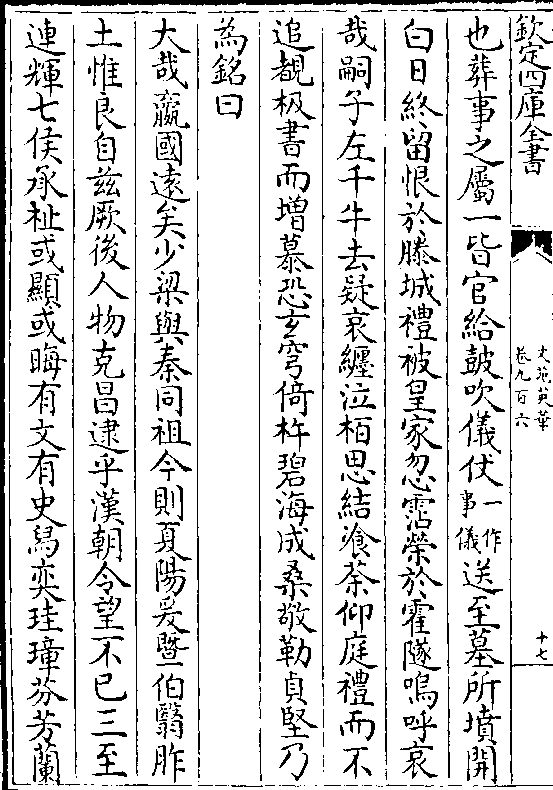 欽定四庫全書
文苑英華
卷九百六
十七
也葬事之屬一皆官給鼓吹儀仗一作事儀送至墓所墳開
白日終留恨於滕城禮被皇家忽霑榮於霍隧嗚呼哀
哉嗣子左千牛去疑哀纏泣栢思結飡荼仰庭禮而不
追覩极書而增慕恐玄穹倚杵碧海成桑敬勒貞堅乃
為銘曰
大哉嬴國遠矣少梁與秦同祖今則夏陽爰暨伯翳胙
土惟良自兹厥後人物克昌逮乎漢朝令望不已三至
連輝七侯承祉或顯或晦有文有史舄奕珪璋芬芳蘭